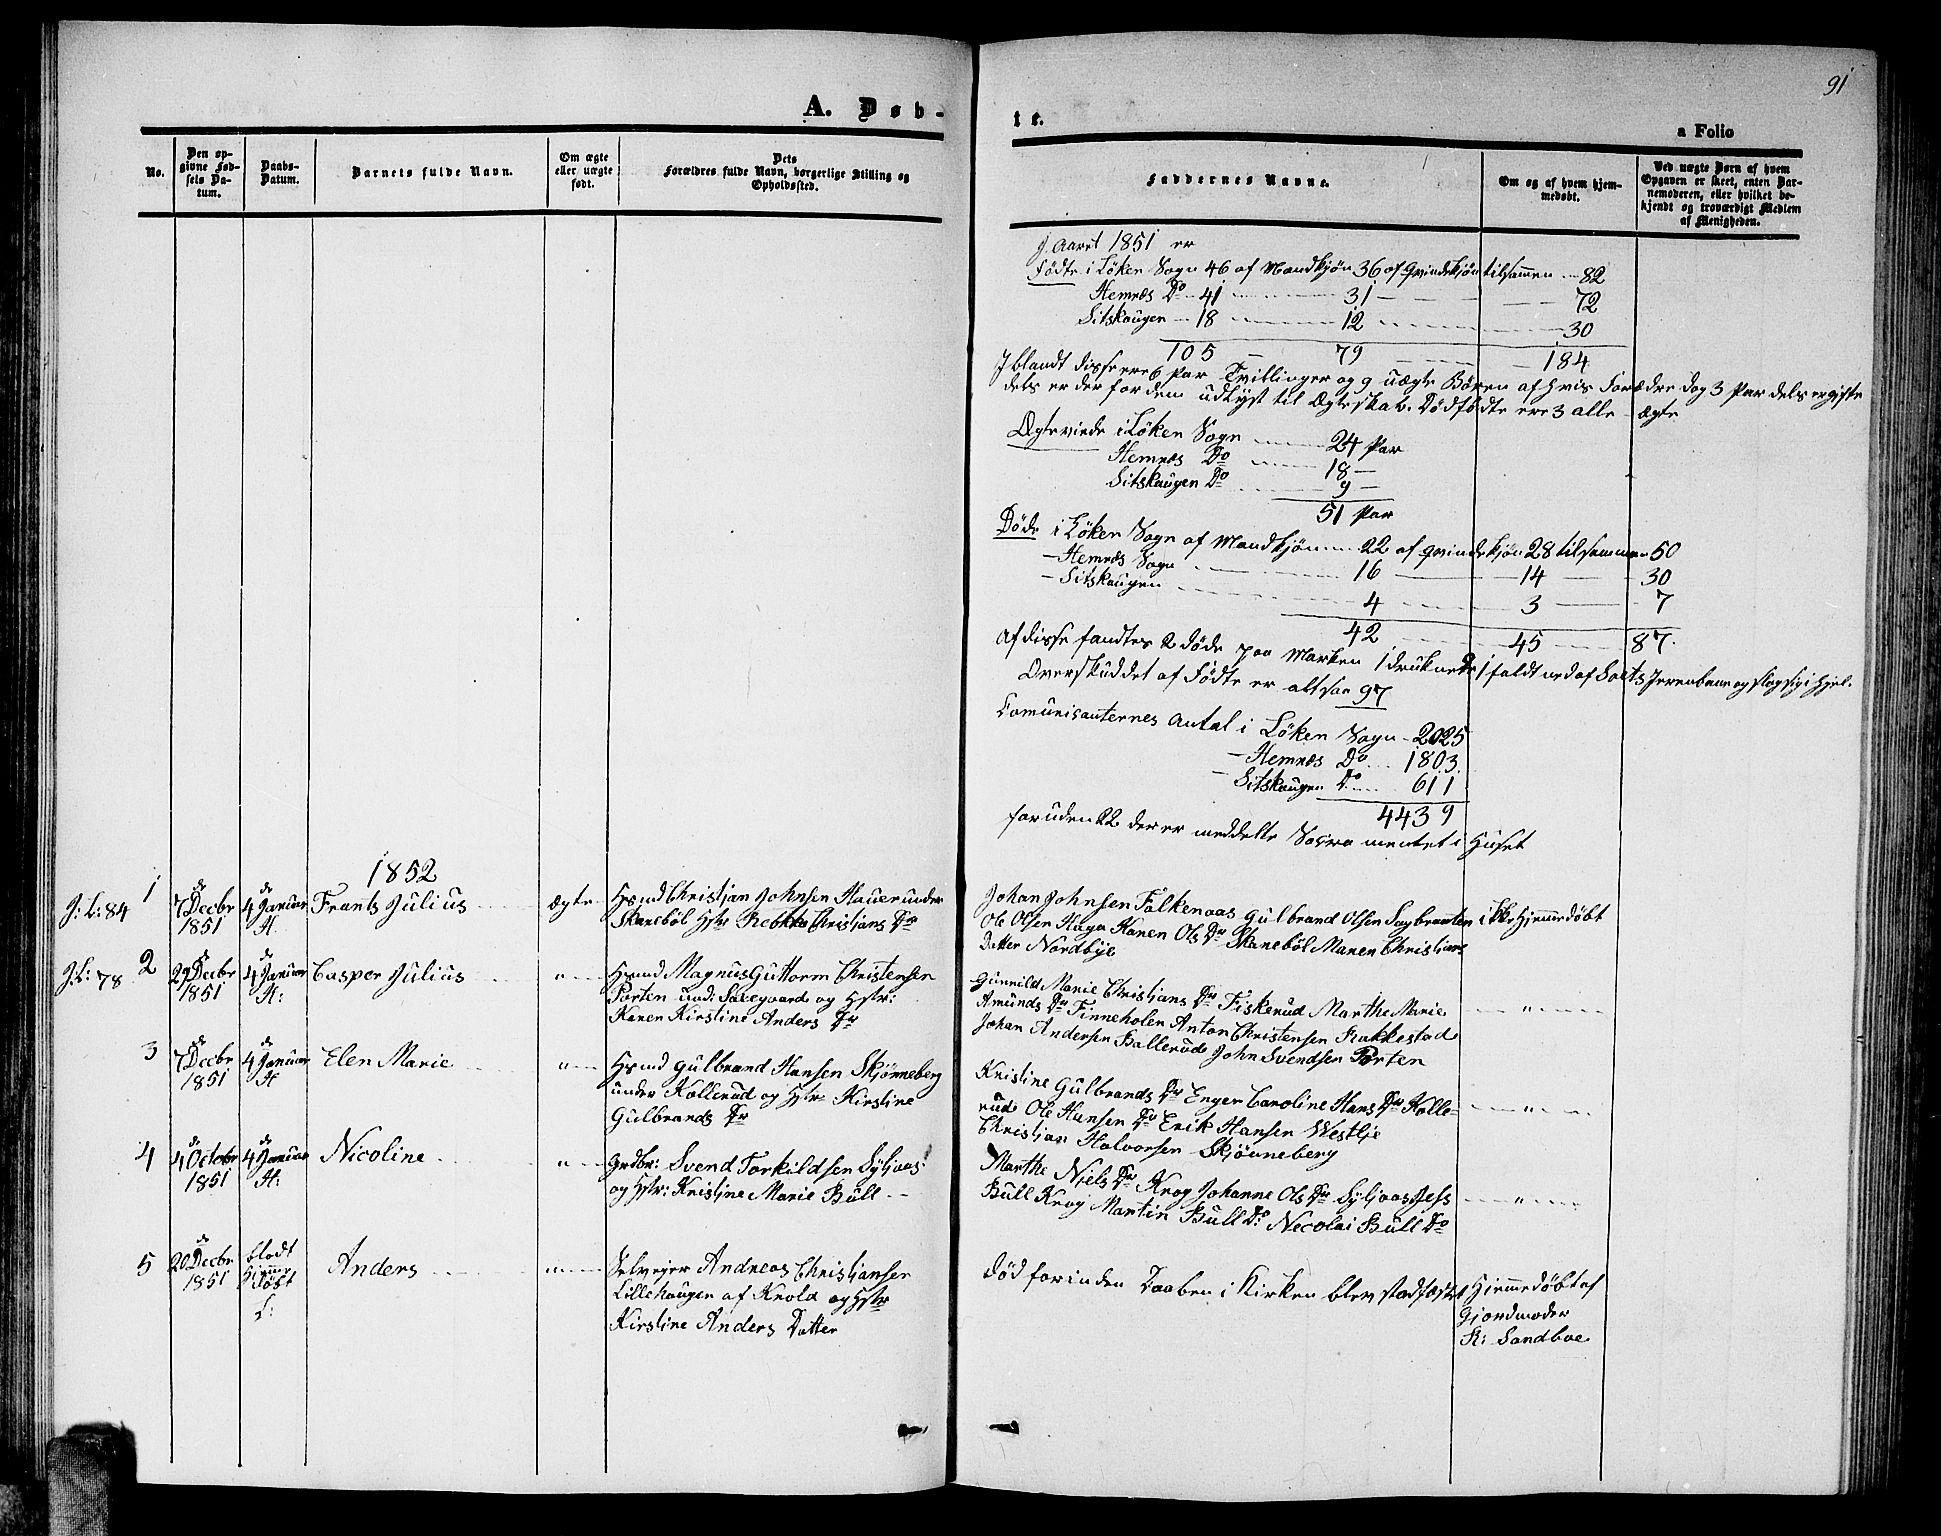 91
A. Døb-
te.
a Folio
No.
Den op-
givne Fød-
sels Da-
tum.
Daabs-
Datum.
Barnets fulde Navn.
Om ægte
eller uægte
født.
Dets
Forældres fulde Navn, borgerlige Stilling og
Opholdssted.
Faddernes Navne.
Om og af hvem hjem-
medøbt.
Ved uægte Børn af hvem
Opgaven er skeet, enten Bar-
nemoderen, eller hvilket be-
kjendt og troværdigt Medlem
af Menigheden.
J Aaret 1851 er
Fødte i Løken Sogn 46 af Mandkjøn 36 af Qvindekjøn tilsammen 82
Hemnæs Do 41 31 72
Sitskaugen 18 12 30
105 79 184
Jblandt disse ere 6 Par Tvillinger og 9 uægte Børen af hvis Forædre dog 3 Par dels er gifte
dels er der for dem udlyst til Ægteskab. Dødfødte ere 3 alle ægte
Ægteviede i Løken Sogn 24 Par
Hemnæs Do 18
Sitskaugen Do 9
51 Par
Døde i Løken Sogn af Mandkjøn 22 af qvindekjøn 28 tilsammen 50
Hemnæs Sogn 16 14 30
Sitskaugen 4 3 7
42 45 87.
Af disse fandtes 2 døde paa Marken 1 druknede 1 faldt ned af Jernbane og slog sig i Hjel.
Overskuddet af Fødte er altsaa 97
Comunicanternes Antal i Løken Sogn 2025
Hemnæs Do 1803
Sitskaugen Do 611
4439
foruden 22 der er meddelte Sacramentet i Huset
1852
J: L: 84 1 7 de Decbr 1851 4 de Januar H. Frants Julius ægte Hsmd Christjan Johnsen Hauer under
Skanebøl Hstr Rebekka Christjans Dr
Johan Johnsen Falkenaas Gulbrand Olsen Sagbraaten ikke Hjemmedøbt
Ole Olsen Haga Karen Ols Dr Skanebøl Maren Christians
Datter Nordbye
J.L: 78 2 29 de Decbr 1851 4 de Januar H: Casper Julius " Hsmd Magnus Guttorm Christensen
Porten und: Saxegaard og Hstr:
Karen Kirstine Anders Dr
Gunnild Marie Christjans Dr Fiskerud Marthe Marie "
Amunds Dr Finneholen Anton Christensen Frakkestad
Johan Andersen Ballerud John Svendsen Porten
3 7 de Decbr 1851 4 de Januar H Elen Marie " Hsmd Gulbrand Hansen Skjønneberg
under Kollerud og Hstr Kirstine
Gulbrands Dr
Kristine Gulbrands Dr Enger Caroline Hans Dr Kolle- "
rud Ole Hansen Do Erik Hansen Westlje
Christjan Halvorsen Skjønneberg
4 4 de Octobr 1851 4 de Januar H: Nicoline " Grdbr: Svend Torkildsen Syljaas
og Hstr: Kristine Marie Bull
Marthe Niels Dr Krog Johanne Ols Dr Syljaas Jess "
Bull Krog Martin Bull Do Necolai Bull Do
5 20 de Decbr 1851 blodt Hjemmedøbt L: Anders " Selvejer Andreas Christjansen
Lillehaugen af Krold og Hstr
Kirstine Anders Datter
død forinden Daaben i Kirken blev stadfæstet Hjemmedøbt af
Gjordmoder
K: Sandboe